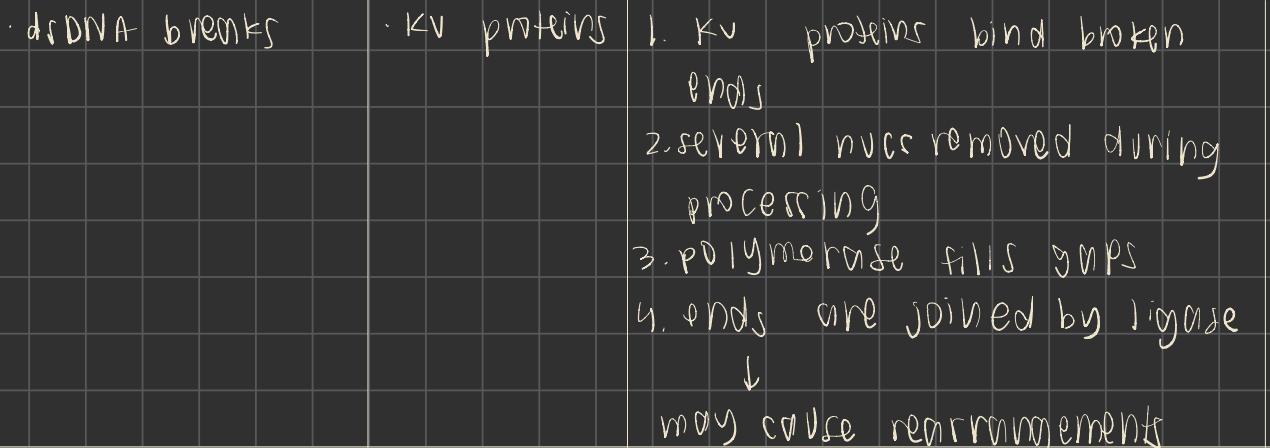 · dsDNA breaks
· KU proteins
1. KU proteins bind broken
ends
2. several nucs removed during
processing
3. polymerase fills gaps
4. ends are joined by ligase
↓
may cause rearrangements